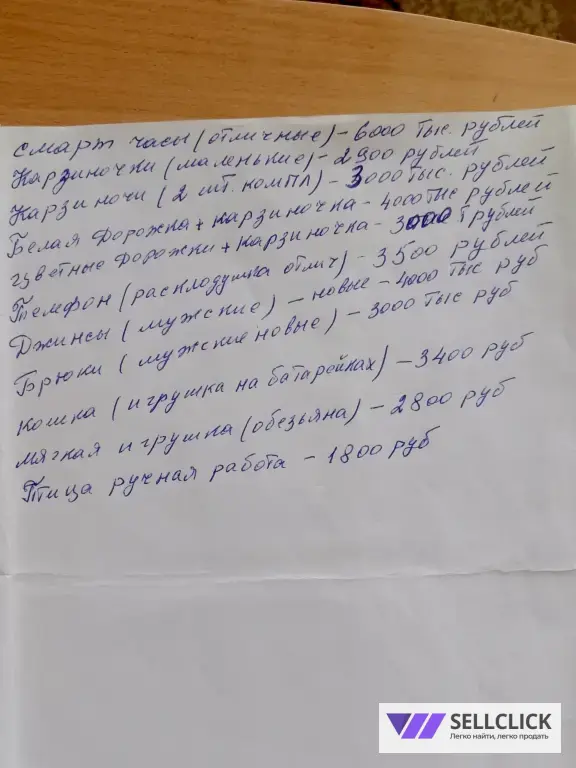 смарт часы (отличные) - 6000 тыс. рублей
Карзиночки (маленькие) - 2900 рублей
Карзиночи (2 шт. компл) - 3000 тыс. рублей
Белая дорожка + карзиночка - 4000 тыс рублей
цветные дорожки + карзиночка - 3000 т рублей
Темфон (расклодушка отлич) - 3500 рублей
Джинсы (мужские) - новые - 4000 тыс руб
Брюки (мужские новые) - 3000 тыс руб
кошка (игрушка на батарейках) - 3400 руб
мягкая игрушка (обезьяна) - 2800 руб
Птица ручная работа - 1800 руб
SELLCLICK
Легко найти, легко продать